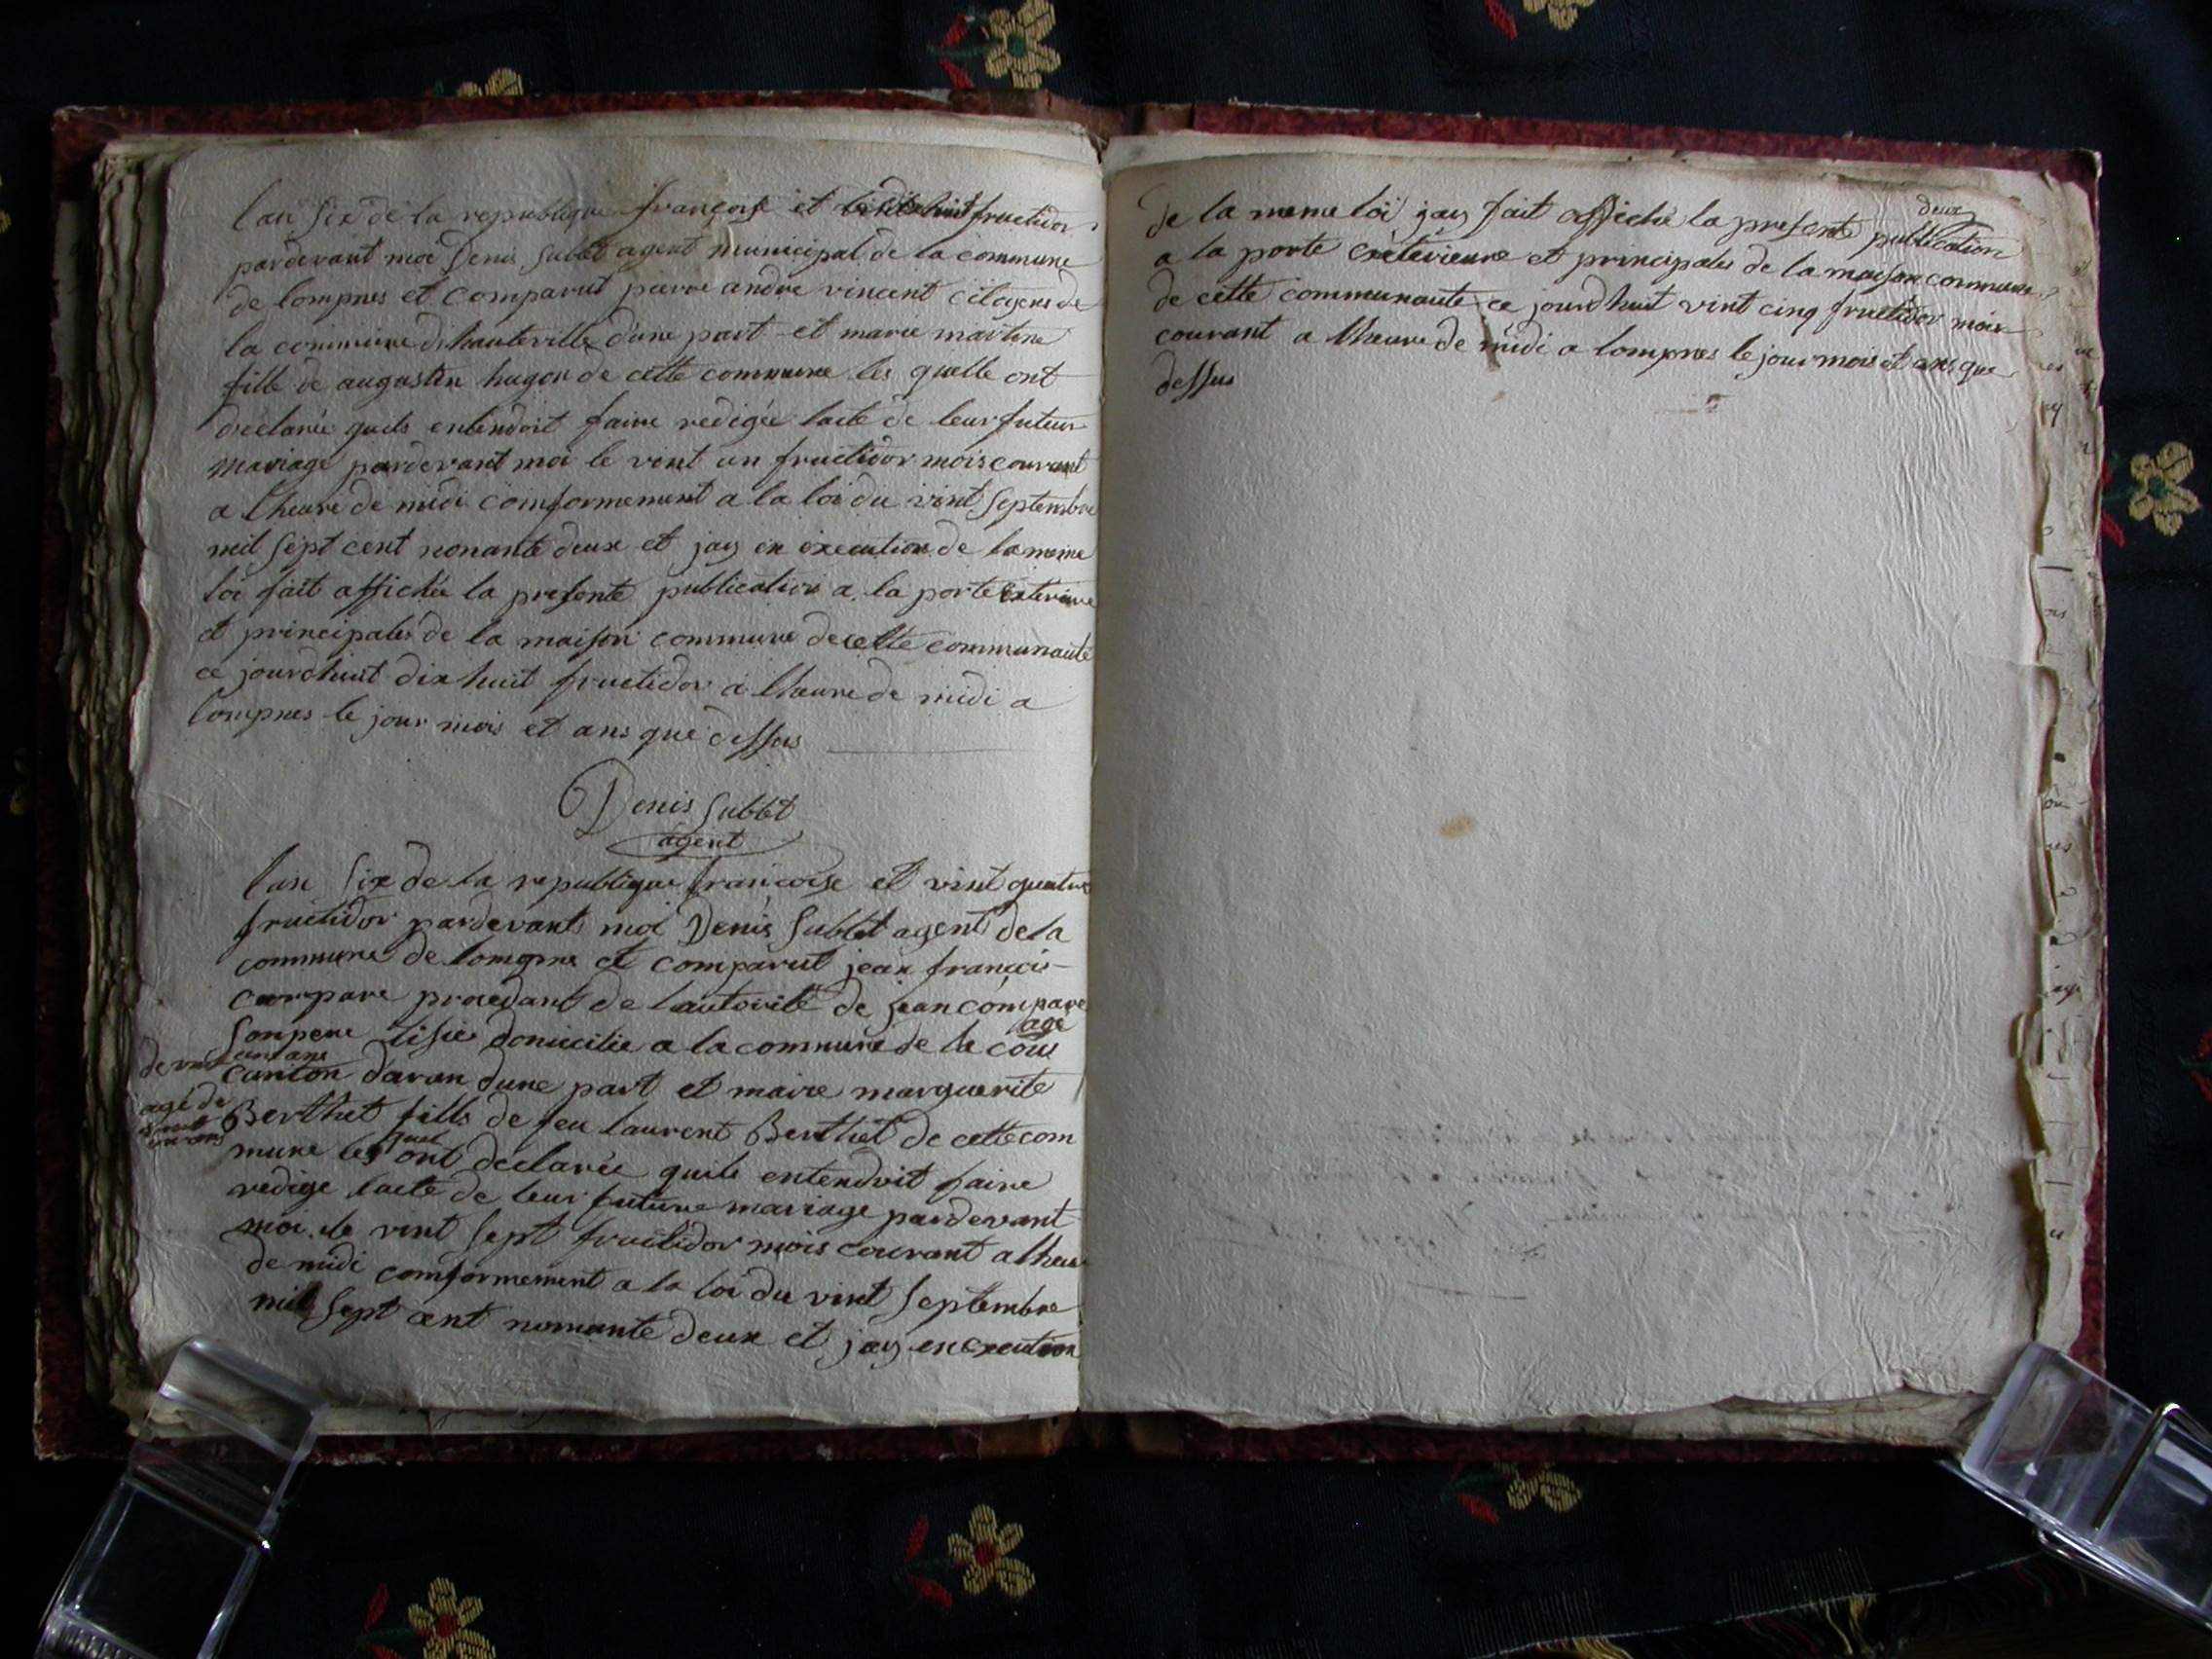 lan six de la republique françoise et le dixhuit fructidor
pardevant moi Denis Sublet agent municipal de la commune
de lompnes et comparut pierre andre vincent citoyens de
la commune dhauteville dune part et marie martine
fille de augustin hugon de cette commune les quelle ont
déclarée quils entendoit faire redigée lacte de leur futur
mariage pardevant moi le vint un fructidor mois courant
a lheure de midi comformement a la loi du vint septembre
mil sept cent nonante deux et jay en execution de la meme
loi fait affichée la presente publication a la porte exterieure
et principales de la maison commune de cette communauté
ce jourdhuit dix huit fructidor a lheure de midi a
lompnes le jour mois et ans que dessus
Denis Sublet
agent
lan six de la republique françoise et vint quatre
fructidor pardevant moi Denis Sublet agent de la
commune de lompne et comparut jean françois
compare procedant de lautorité de jean compare
son pere domicilie a la commune de
agé
canton daran dune part et marie marguerite
agé de
Berthet fille de feu laurent Berthet de cette com
mune les quel ont déclarée quils entendoit faire
redige lacte de leur future mariage pardevant
moi le vint sept fructidor mois courant a lheure
de midi comformement a la loi du vint septembre
mil sept cent nonante deux et jay en execution
deux
de la meme loi jay fait affiché la presente publication
a la porte exterieure et principales de la maison commune
de cette communaute ce jourdhuit vint cinq fructidor mois
courant a lheure de midi a lompnes le jour mois et ans que
dessus